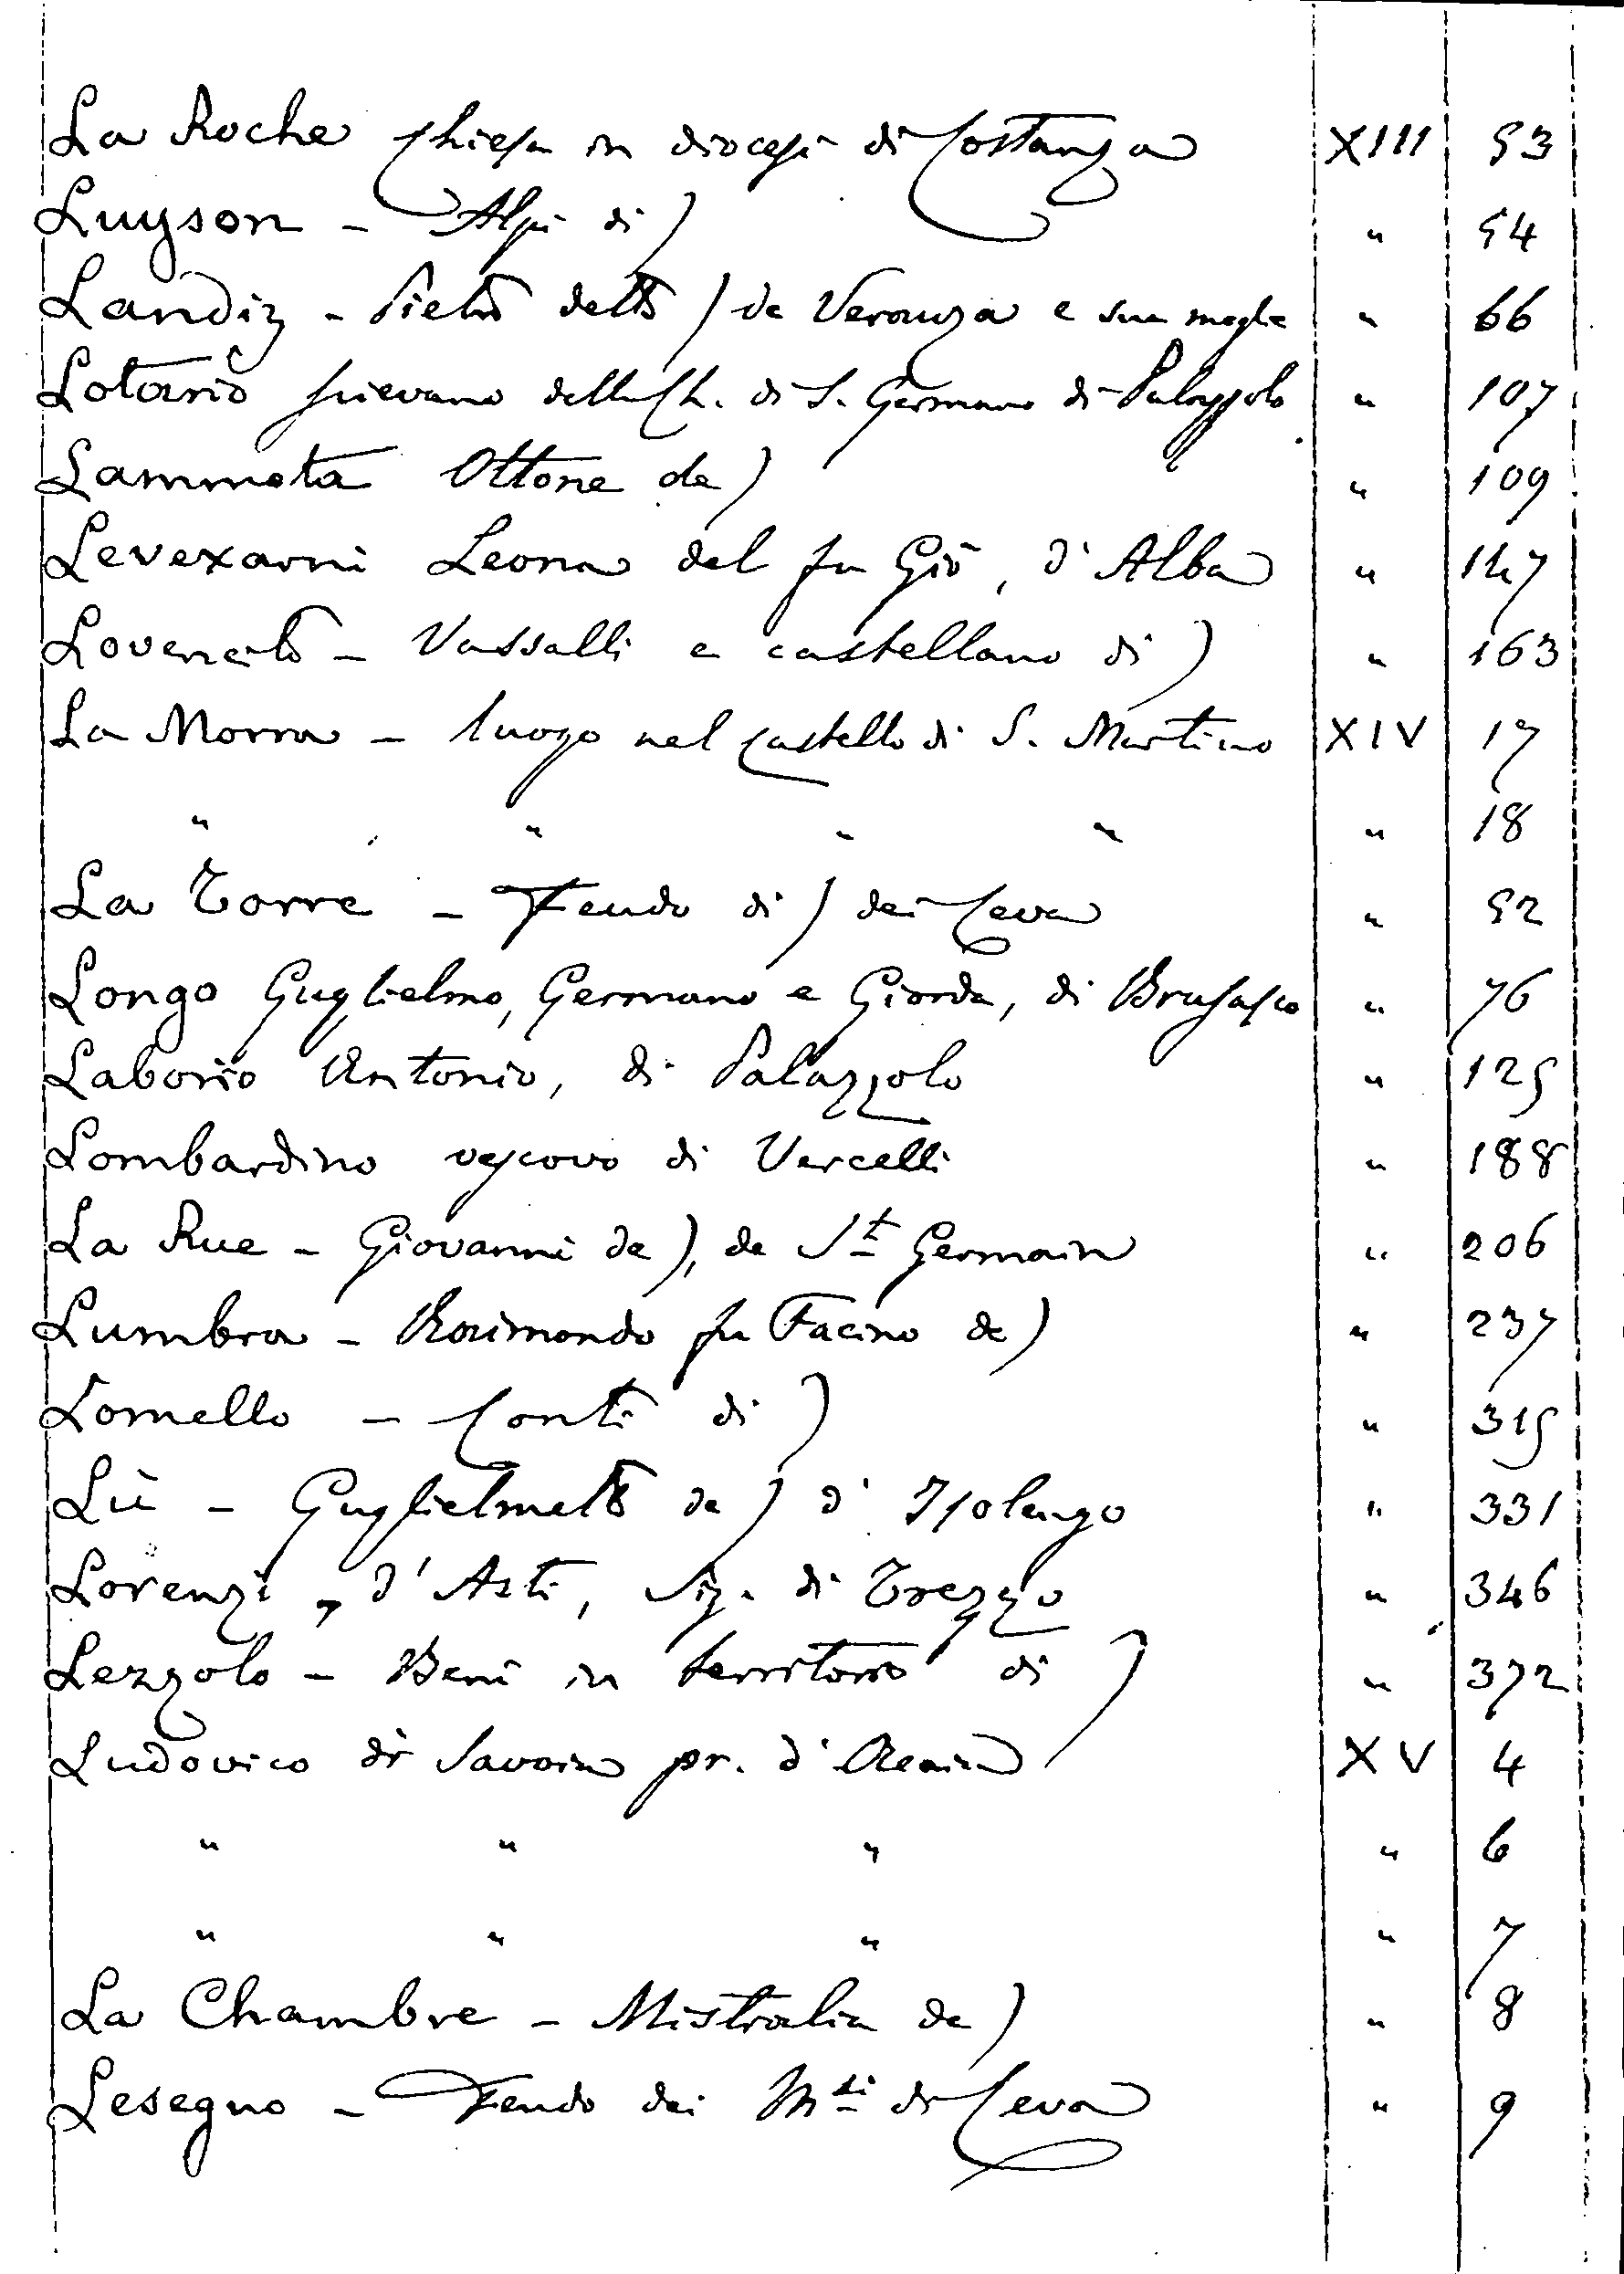 La Roche Chiesa in diocesi di Costanza XIII 53
Luyson - Alpi di) " 54
Landiz - Pietro detto) de Verouza e sua moglie " 66
Lotario pievano della Ch. di S. Germano di Palazzolo " 107
Lammota Ottone de) " 109
Levexarni Leona del fu Giō, d'Alba " 147
Loveneito - Vassalli e castellano di) " 163
La Morra - luogo nel castello di S. Martino XIV 17
" " " " " 18
La Torre - Feudo di) dei Ceva " 52
Longo Guglielmo, Germano e Giorda, di Brusasco " 76
Laborio Antonio, di Palazzolo " 125
Lombardino vescovo di Vercelli " 188
La Rue - Giovanni de), de St Germain " 206
Lumbra - Raimondo fu Facino de) " 237
Lomello - Conti di) " 315
Lù - Guglielmetto de) d'Isolengo " 331
Lorenzi, d'Asti, Sig. di Trezzo " 346
Lezzolo - Beni in territorio di) " 372
Ludovico di Savoia pr. d'Acaia XV 4
" " " " 6
" " " " 7
La Chambre - Mistralia de) " 8
Lesegno - Feudo dei Msi di Ceva " 9